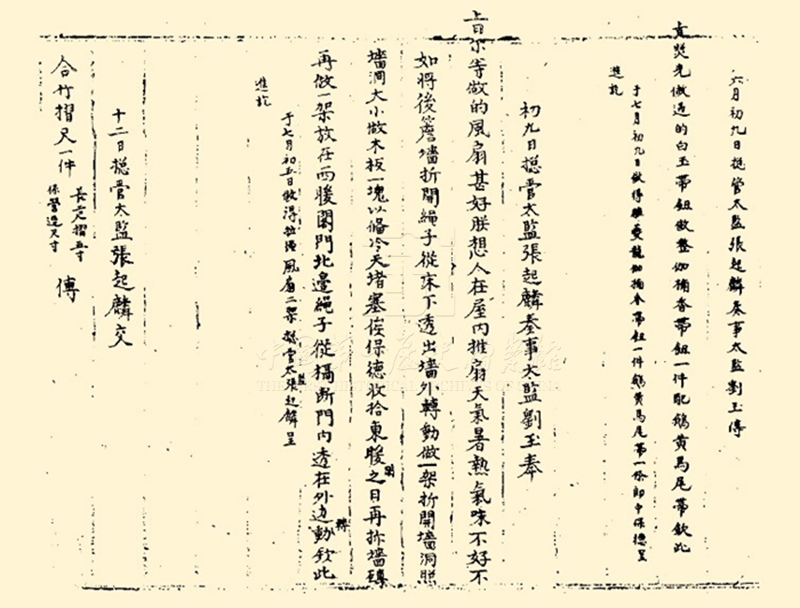 六月初九日捴管太監張起麟奏事太監劉玉傳
旨照先做過的白玉帶鈕做整伽楠香帶鈕一件配鵝黃馬尾帶欽此
于七月初九日做得雕雙龍伽楠香帶鈕一件鵝黃馬尾帶一條郎中保德呈
進訖
初九日捴管太監張起麟奏事太監劉玉奉
上曰尔等做的風扇甚好朕想人在屋內推扇天氣暑熱氣味不好不
如將後簷墻折開繩子從床下透出墻外轉動做一架折開墻洞照
墻洞大小做木板一塊以備冷天堵塞俟保德收拾東暖閣之日再拆墻磚
再做一架放在西暖閣門北邊繩子從槅断門內透在外边轉動欽此
于七月初五日做得拉繩風扇二架捴管太監張起麟呈
進訖
十二日捴管太監張起麟交
合竹摺尺一件
摺五寸
係營造尺寸
傳